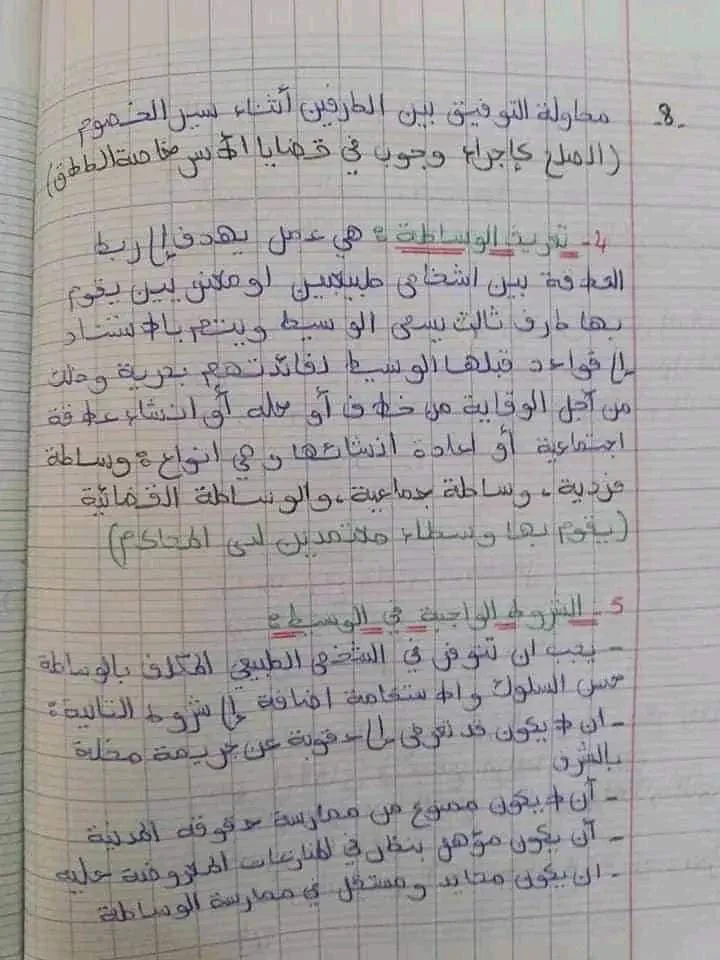 -8- محاولة التوفيق بين الطرفين أثناء سير الخصوم
(الصلح كإجراء وجوب في قضايا الأسر خاصة الطلاق)
4- تعريف الوساطة: هي عمل يهدف إلى ربط
العلاقة بين اشخاص طبيعيين او معنويين يقوم
بها طرف ثالث يسمى الوسيط ويتم بالاستناد
إلى قواعد قبلها الوسيط لفائدتهم بحرية وذلك
من أجل الوقاية من خلاف أو حله أو انشاء علاقة
اجتماعية أو اعادة انشائها وهي انواع: وساطة
فردية، وساطة جماعية، والوساطة القضائية
(يقوم بها وسطاء معتمدين لدى المحاكم)
5- الشروط الواجبة في الوسيط:
- يجب ان تتوفر في الشخص الطبيعي المكلف بالوساطة
حسن السلوك والاستقامة اضافة إلى شروط التالية:
- ان لا يكون قد تعرض إلى عقوبة عن جريمة مخلة
بالشرف
- أن لا يكون ممنوع من ممارسة حقوقه المدنية
- أن يكون مؤهل ينظر في المنازعات المعروضة عليه
- ان يكون محايد ومستقل في ممارسة الوساطة